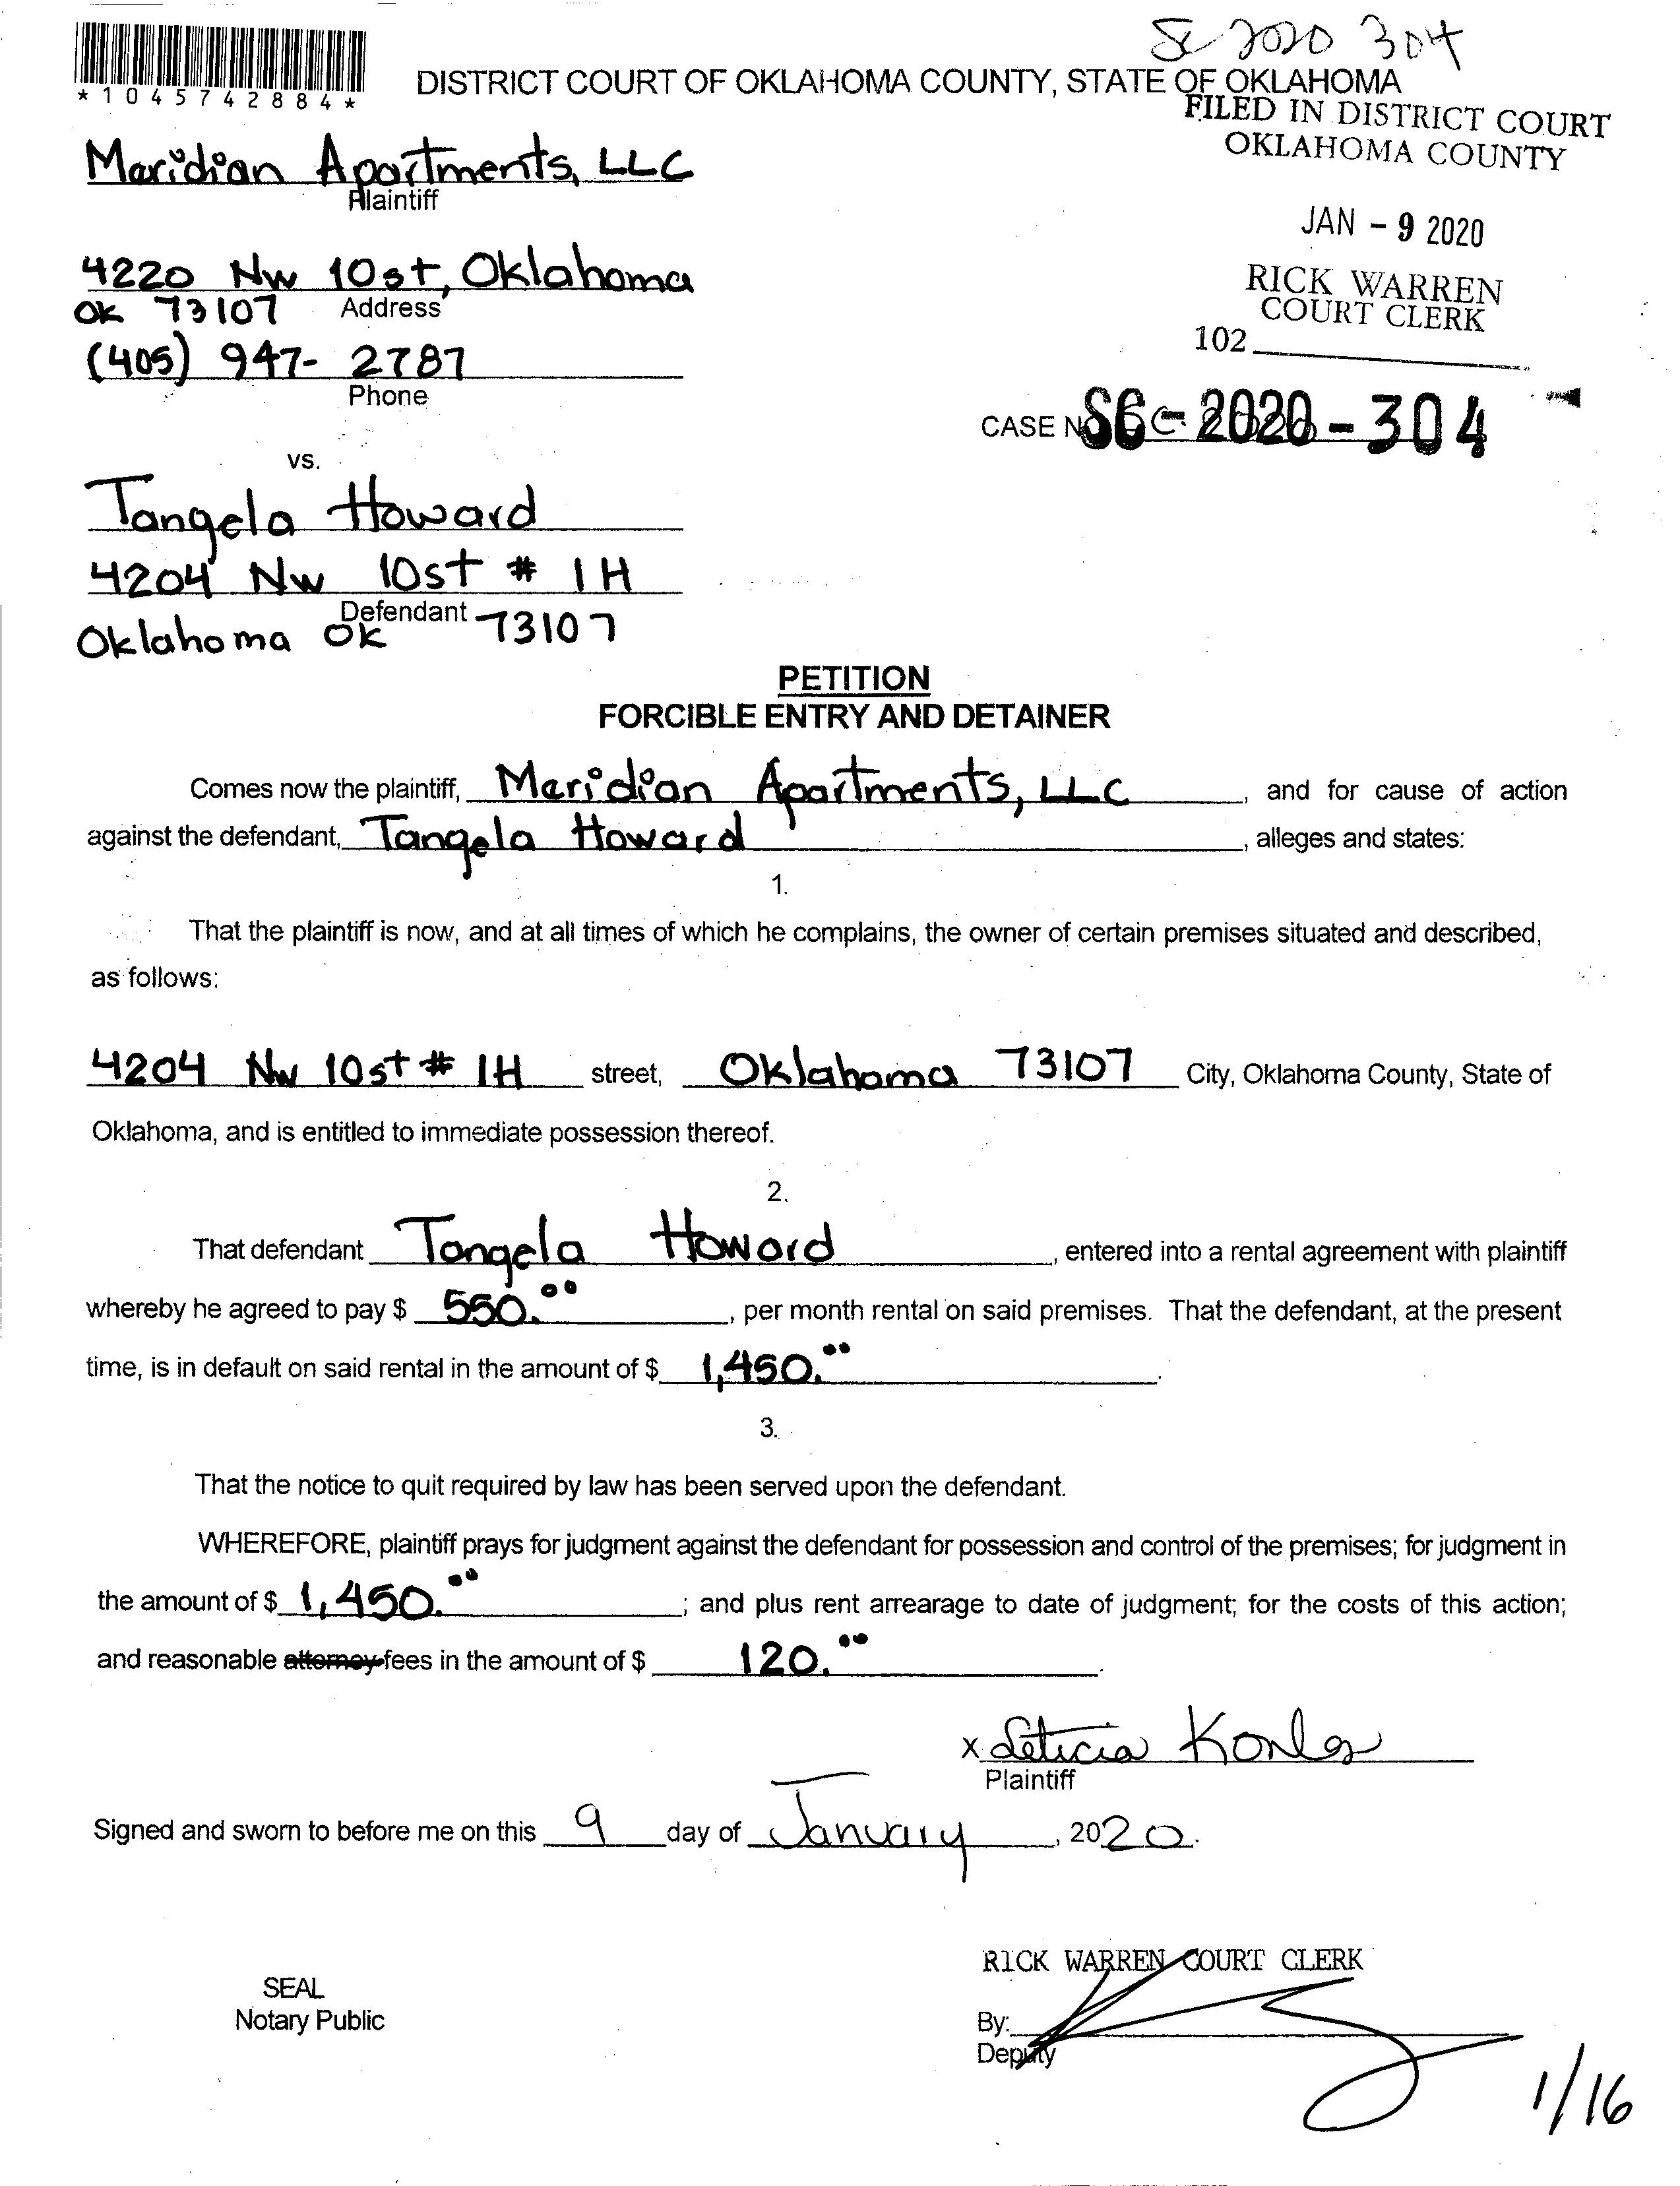 SC 2020 304
*1045742884*
DISTRICT COURT OF OKLAHOMA COUNTY, STATE OF OKLAHOMA
FILED IN DISTRICT COURT
OKLAHOMA COUNTY
JAN - 9 2020
RICK WARREN
COURT CLERK
102
Meridian Apartments, LLC
Plaintiff
4220 NW 10st, Oklahoma
OK 73107 Address
(405) 947-2787
Phone
CASE NO SC-2020-304
vs.
Tangela Howard
4204 NW 10st # 1H
Defendant
Oklahoma OK 73107
PETITION
FORCIBLE ENTRY AND DETAINER
Comes now the plaintiff, Meridian Apartments, LLC, and for cause of action
against the defendant, Tangela Howard, alleges and states:
1.
That the plaintiff is now, and at all times of which he complains, the owner of certain premises situated and described,
as follows:
4204 NW 10st # 1H street, Oklahoma 73107 City, Oklahoma County, State of
Oklahoma, and is entitled to immediate possession thereof.
2.
That defendant Tangela Howard, entered into a rental agreement with plaintiff
whereby he agreed to pay $ 550.00, per month rental on said premises. That the defendant, at the present
time, is in default on said rental in the amount of $ 1,450.00.
3.
That the notice to quit required by law has been served upon the defendant.
WHEREFORE, plaintiff prays for judgment against the defendant for possession and control of the premises; for judgment in
the amount of $ 1,450.00; and plus rent arrearage to date of judgment; for the costs of this action;
and reasonable attorney fees in the amount of $ 120.00.
x Leticia
Plaintiff
Signed and sworn to before me on this 9 day of January, 2020.
RICK WARREN COURT CLERK
SEAL
Notary Public
By:
Deputy
1/16